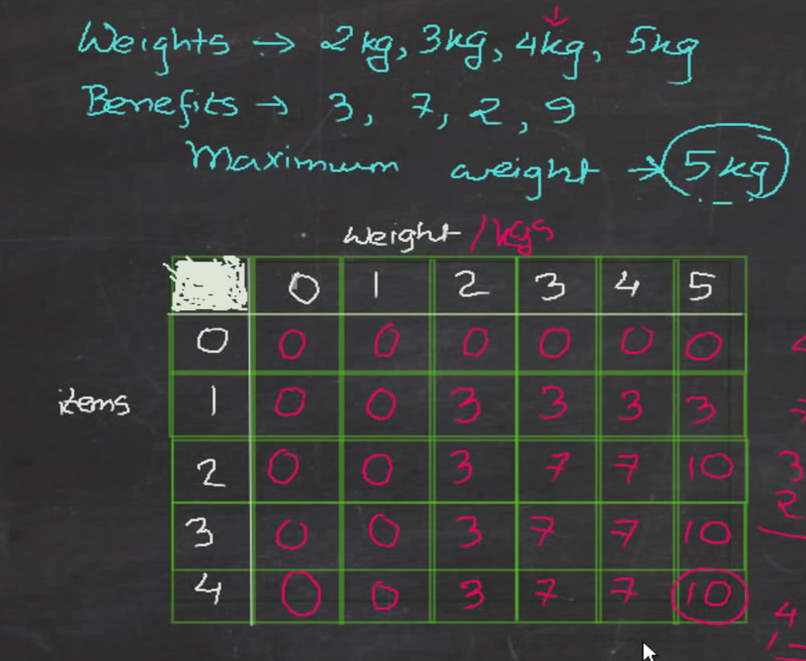 Weights → 2kg, 3kg, 4kg, 5kg
Benefits → 3, 7, 2, 9
Maximum weight → 5 kg
Weight / kgs
0 1 2 3 4 5
0 0 0 0 0 0 0
items 1 0 0 3 3 3 3
2 0 0 3 7 7 10
3 0 0 3 7 7 10
4 0 0 3 7 7 10